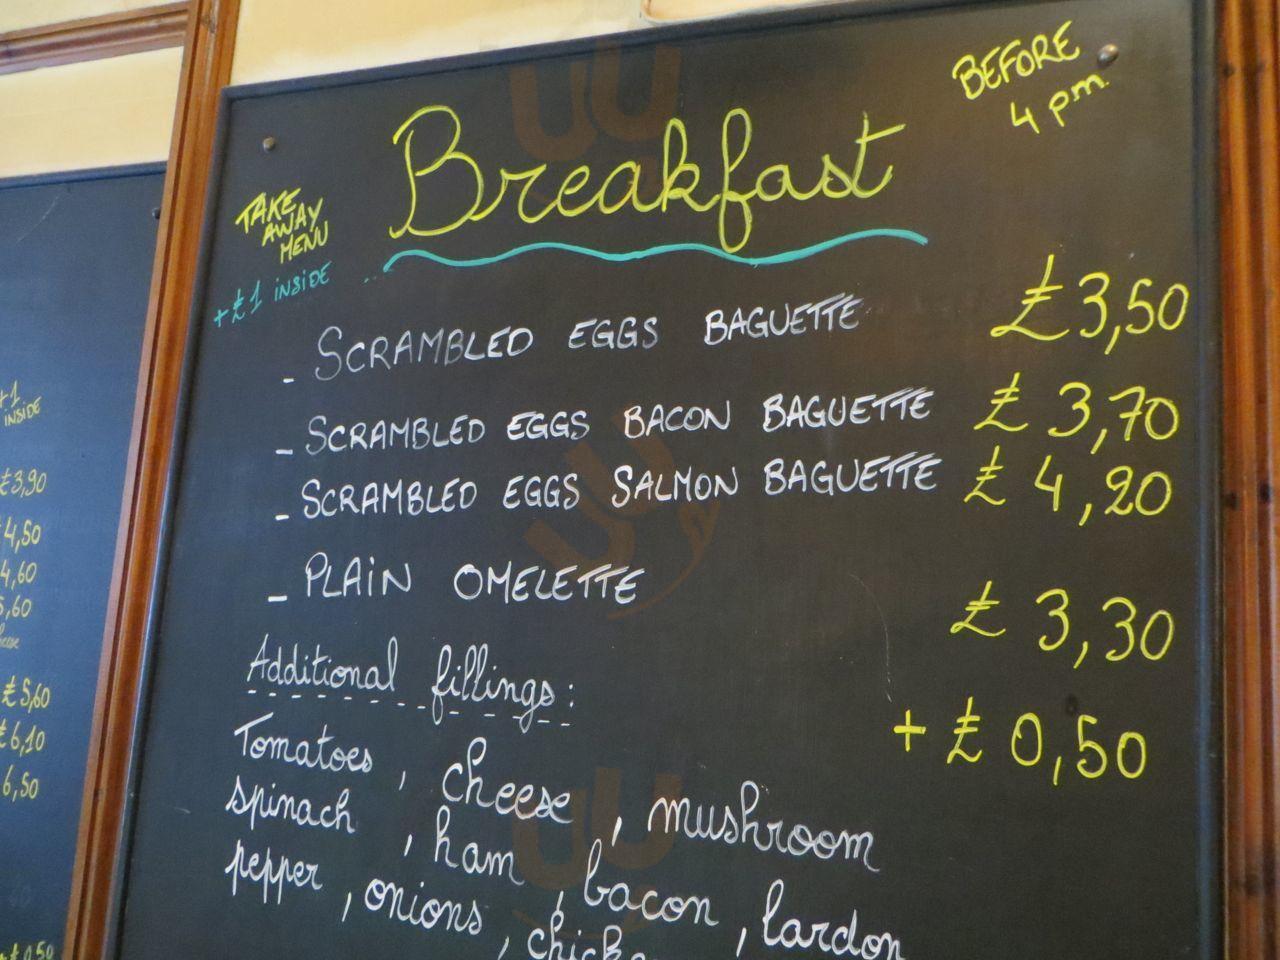 BEFORE
4 pm.
Breakfast
TAKE
AWAY
MENU
+£1 INSIDE
- SCRAMBLED EGGS BAGUETTE £3,50
- SCRAMBLED EGGS BACON BAGUETTE £3,70
- SCRAMBLED EGGS SALMON BAGUETTE £4,20
- PLAIN OMELETTE £3,30
Additional fillings: +£0,50
Tomatoes, cheese, mushroom
spinach, ham, bacon, lardon
pepper, onions,
+1
INSIDE
£3,90
4,50
4,60
5,60
£5,60
£6,10
6,50